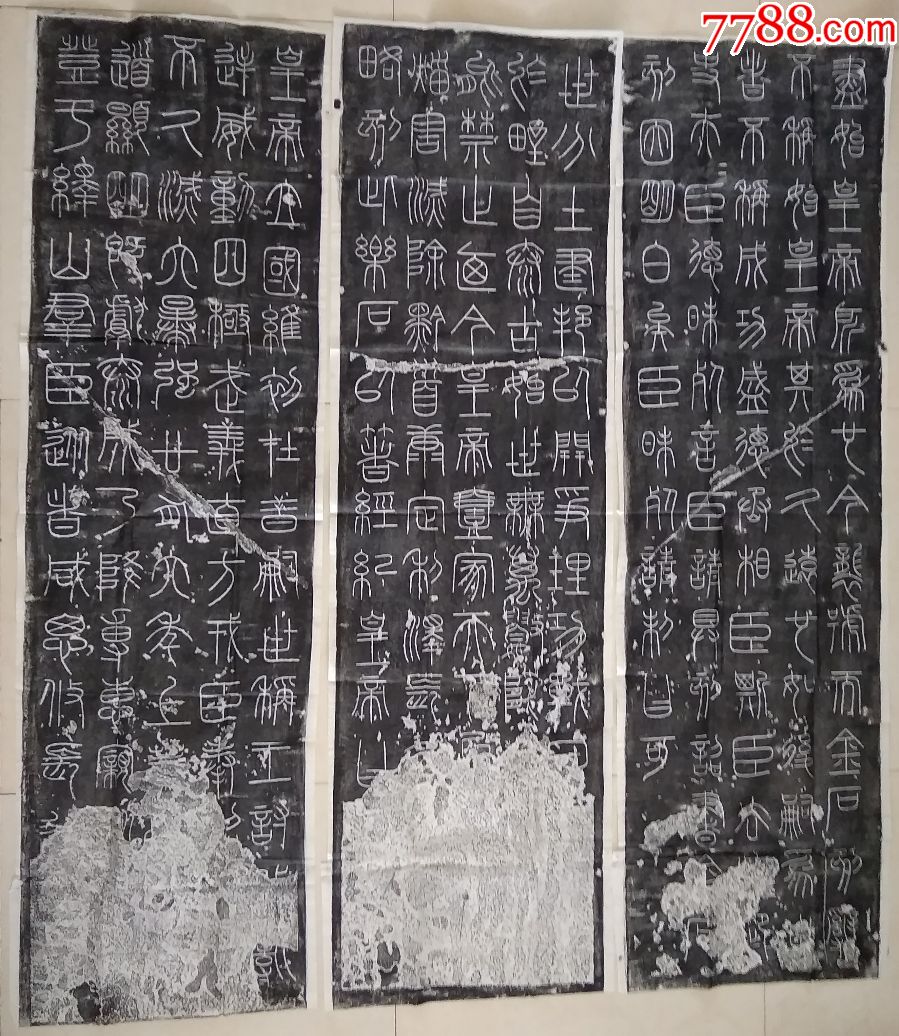 7788.com
皇帝立國維初在昔嗣世稱王討
逆威動四極武義直方戎臣奉
不久滅六暴強廿有六年上薦
道顯明既獻泰成乃降専惠寴
登于繹山群臣從者咸思攸長
世分土建邦以開爭理功戰日
於野自泰古始世無萬數陀
能禁止廼今皇帝壹家天下
熖害滅除黔首康定利澤長
略刻此樂石以著經紀皇帝曰
盡始皇帝所為也今襲號而金石刻辭
不稱始皇帝其於久遠也如後嗣為
者不稱成功盛德丞相臣斯臣去
史夫臣德昧死言臣請具刻詔書金石
刻因明白矣臣昧死請制曰可